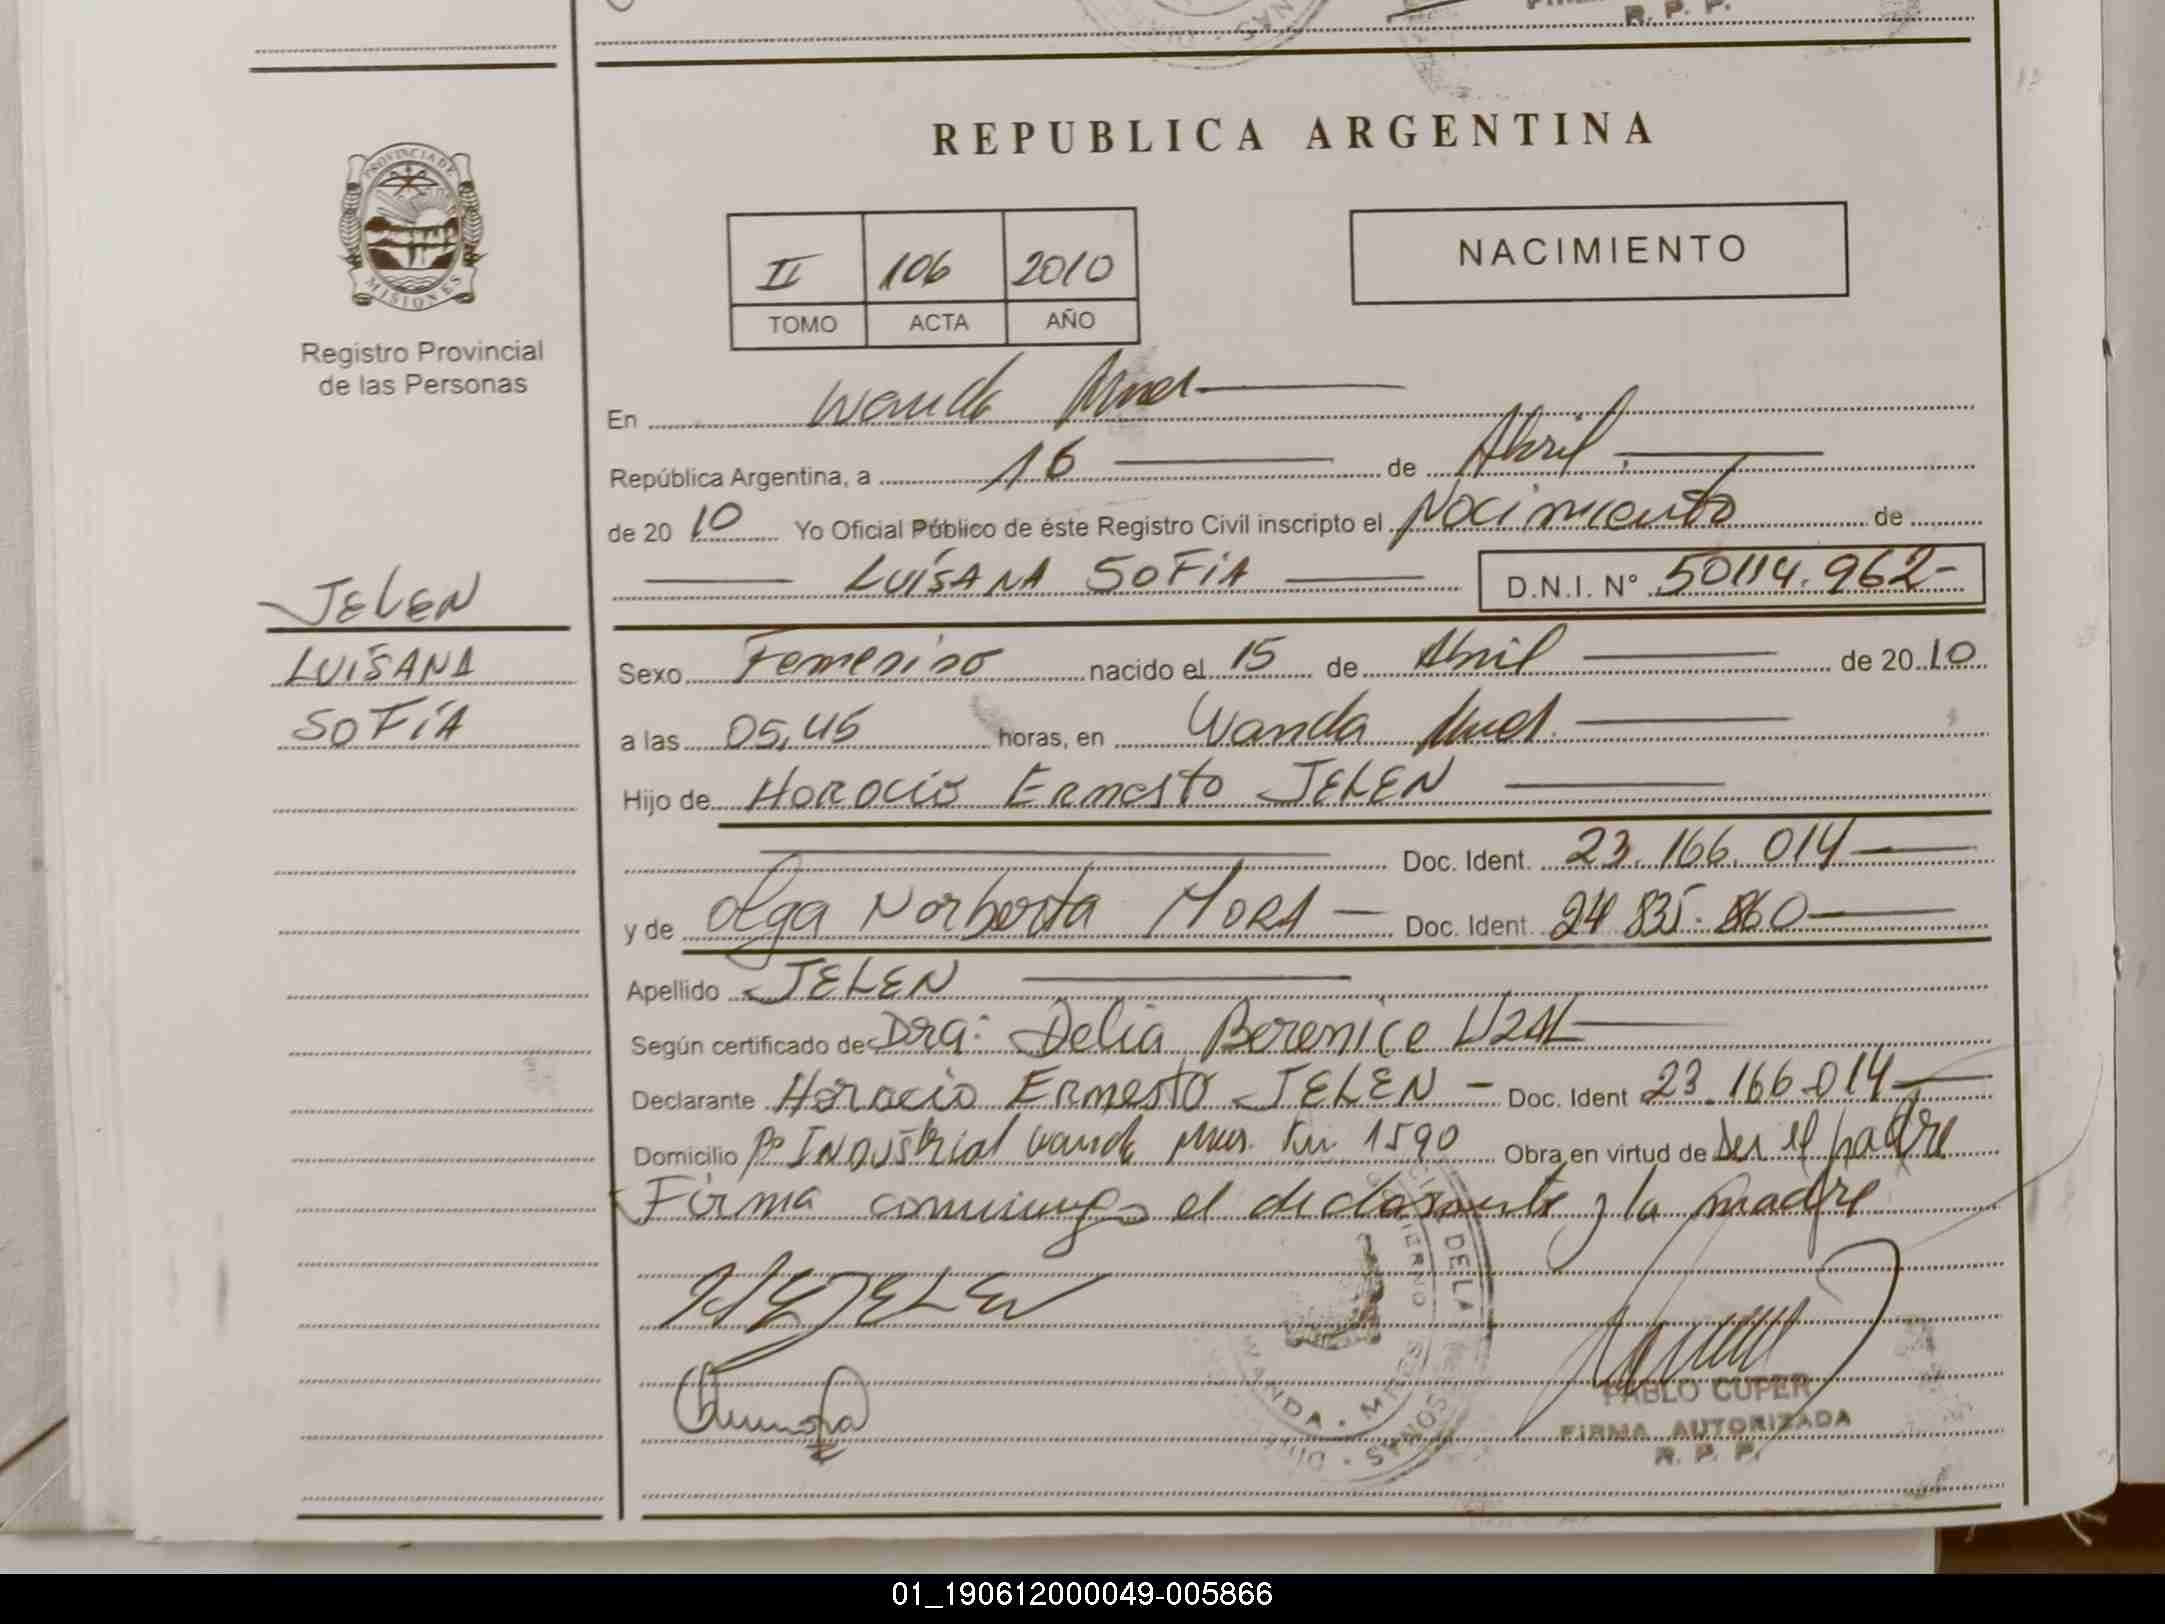 R. P. P.
REPUBLICA ARGENTINA
PROVINCIA DE
MISIONES
Registro Provincial
de las Personas
II 106 2010
TOMO ACTA AÑO
NACIMIENTO
En Wanda Mnes
República Argentina, a 16 de Abril
de 2010 Yo Oficial Público de éste Registro Civil inscripto el Nacimiento de
LUÍSANA SOFÍA D.N.I. N° 50114.962-
JELEN
LUÍSANA
SOFÍA
Sexo Femenino nacido el 15 de Abril de 2010
a las 05,45 horas, en Wanda Mnes
Hijo de Horacio Ernesto JELEN
Doc. Ident. 23.166.014
y de Olga Norberta MORA Doc. Ident. 24 835.860
Apellido JELEN
Según certificado de Dra: Delia Berenice UZAL
Declarante Horacio Ernesto JELEN - Doc. Ident 23.166.014
Domicilio Po INDUStrial Wanda Mnes. Km 1590 Obra en virtud de Ser el padre
Firma conmigo el declarante y la madre
HEJELEN
DE LA
WANDA · MNES
PABLO CUPER
FIRMA AUTORIZADA
R. P. P.
01_190612000049-005866